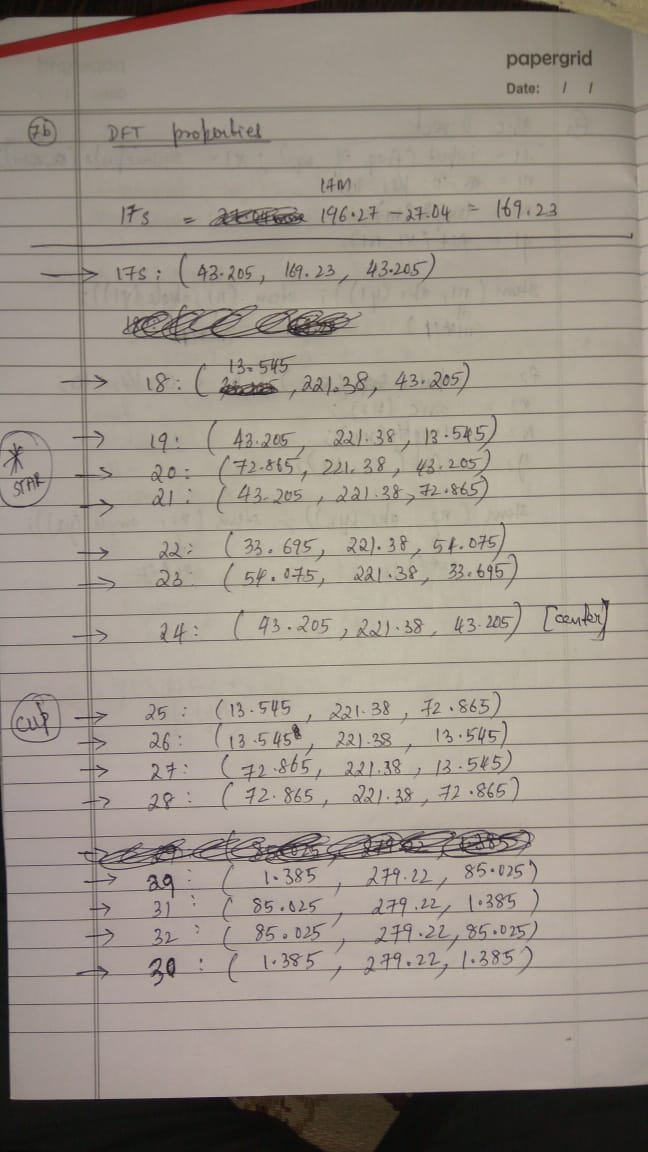 papergrid
Date: / /
7b DFT properties
17M
17s = 196.27 - 27.04 = 169.23
→ 17s : (43.205, 169.23, 43.205)
13.545
→ 18 : ( , 221.38, 43.205)
→ 19 : (43.205, 221.38, 13.545)
* STAR → 20 : (72.865, 221.38, 43.205)
→ 21 : (43.205, 221.38, 72.865)
→ 22 : (33.695, 221.38, 54.075)
→ 23 : (54.075, 221.38, 33.695)
→ 24 : (43.205, 221.38, 43.205) [center]
cup → 25 : (13.545, 221.38, 72.865)
→ 26 : (13.545, 221.38, 13.545)
→ 27 : (72.865, 221.38, 13.545)
→ 28 : (72.865, 221.38, 72.865)
→ 29 : (1.385, 279.22, 85.025)
→ 31 : (85.025, 279.22, 1.385)
→ 32 : (85.025, 279.22, 85.025)
→ 30 : (1.385, 279.22, 1.385)